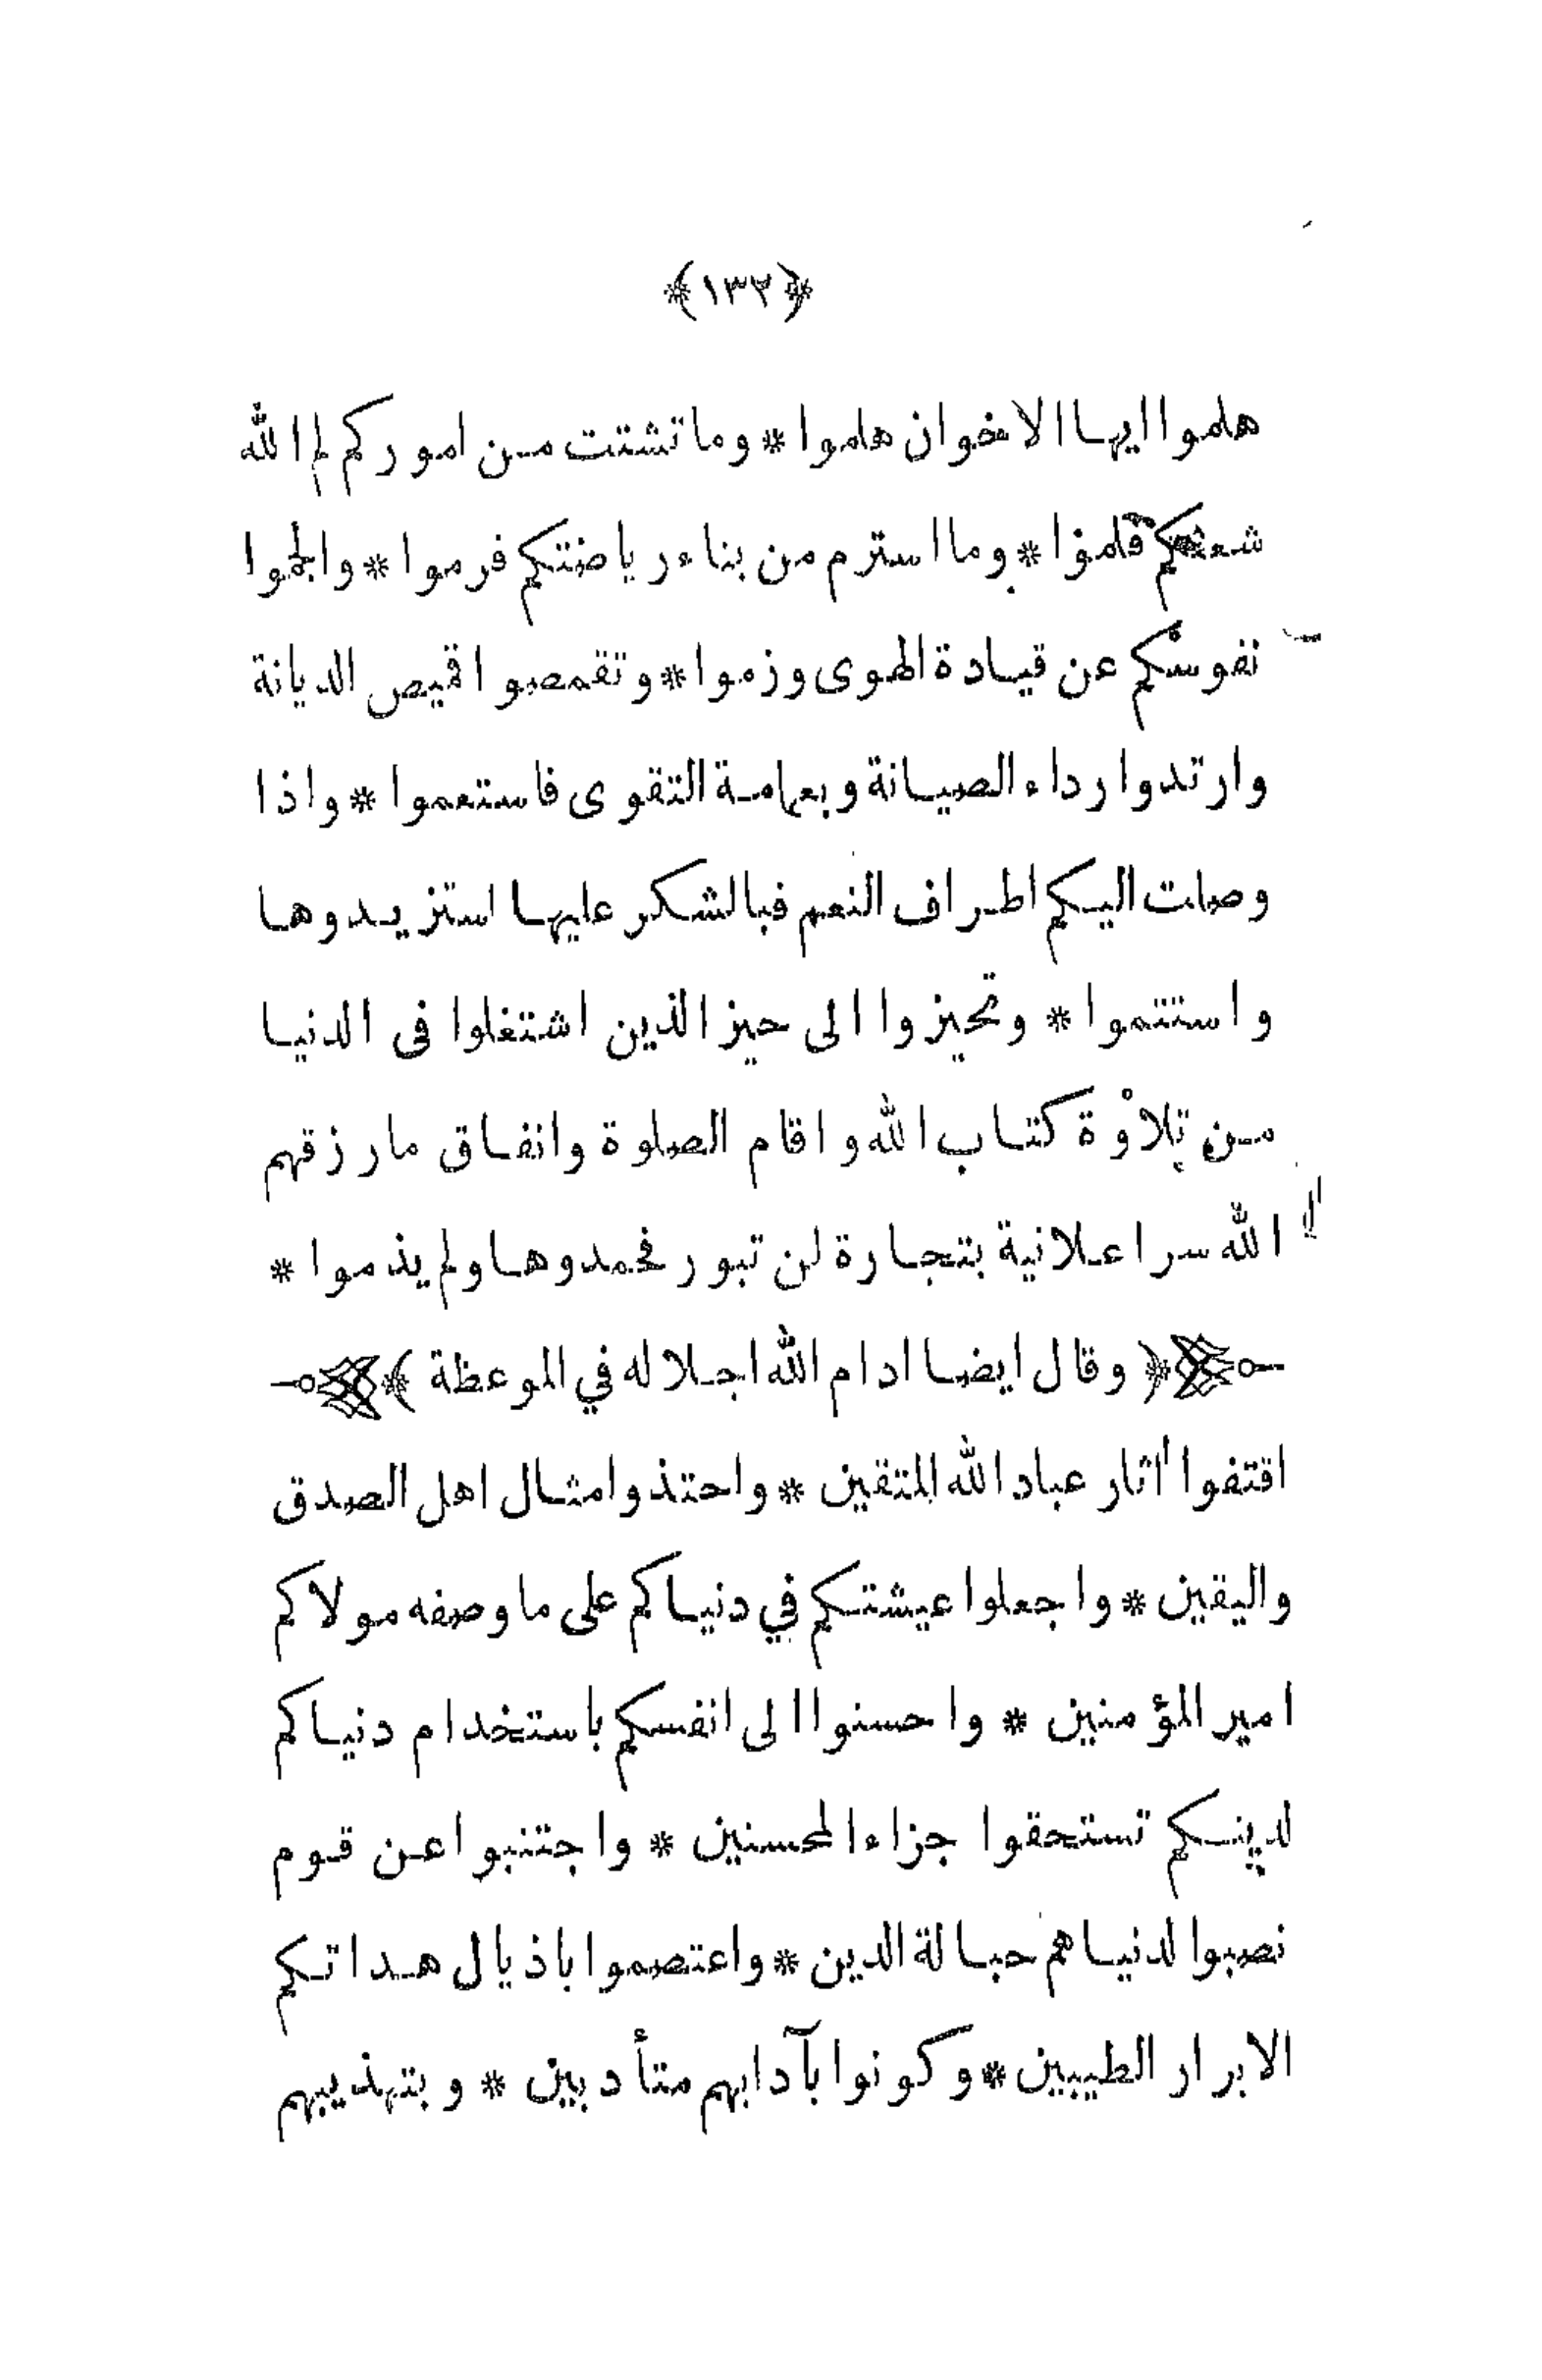 ﴿١٣٢﴾
هلموا ايها الاخوان هلموا * وما تشتت من اموركم لم الله
شعثكم فلموا * وما استرم من بناء رياضتكم فرموا * والجموا
نفوسكم عن قيادة الهوى وزموا * وتقمصوا قميص الديانة
وارتدوا رداء الصيانة وبعمامة التقوى فاستعموا * واذا
وصلت اليكم اطراف النعم فبالشكر عليها استزيدوها
واستتموا * وتحيزوا الى حيز الذين اشتغلوا فى الدنيا
من تلاوة كتاب الله واقام الصلوة وانفاق ما رزقهم
الله سرا علانية بتجارة لن تبور فحمدوها ولم يذموا *
﴿ وقال ايضا ادام الله اجلاله في الموعظة ﴾
اقتفوا اثار عباد الله المتقين * واحتذوا مثال اهل الصدق
واليقين * واجعلوا عيشتكم في دنياكم على ما وصفه مولاكم
امير المؤمنين * واحسنوا الى انفسكم باستخدام دنياكم
لدينكم تستحقوا جزاء المحسنين * واجتنبوا عن قوم
نصبوا لدنياهم حبالة الدين * واعتصموا باذيال هداتكم
الابرار الطيبين * وكونوا بآدابهم متأدبين * وبتهذيبهم